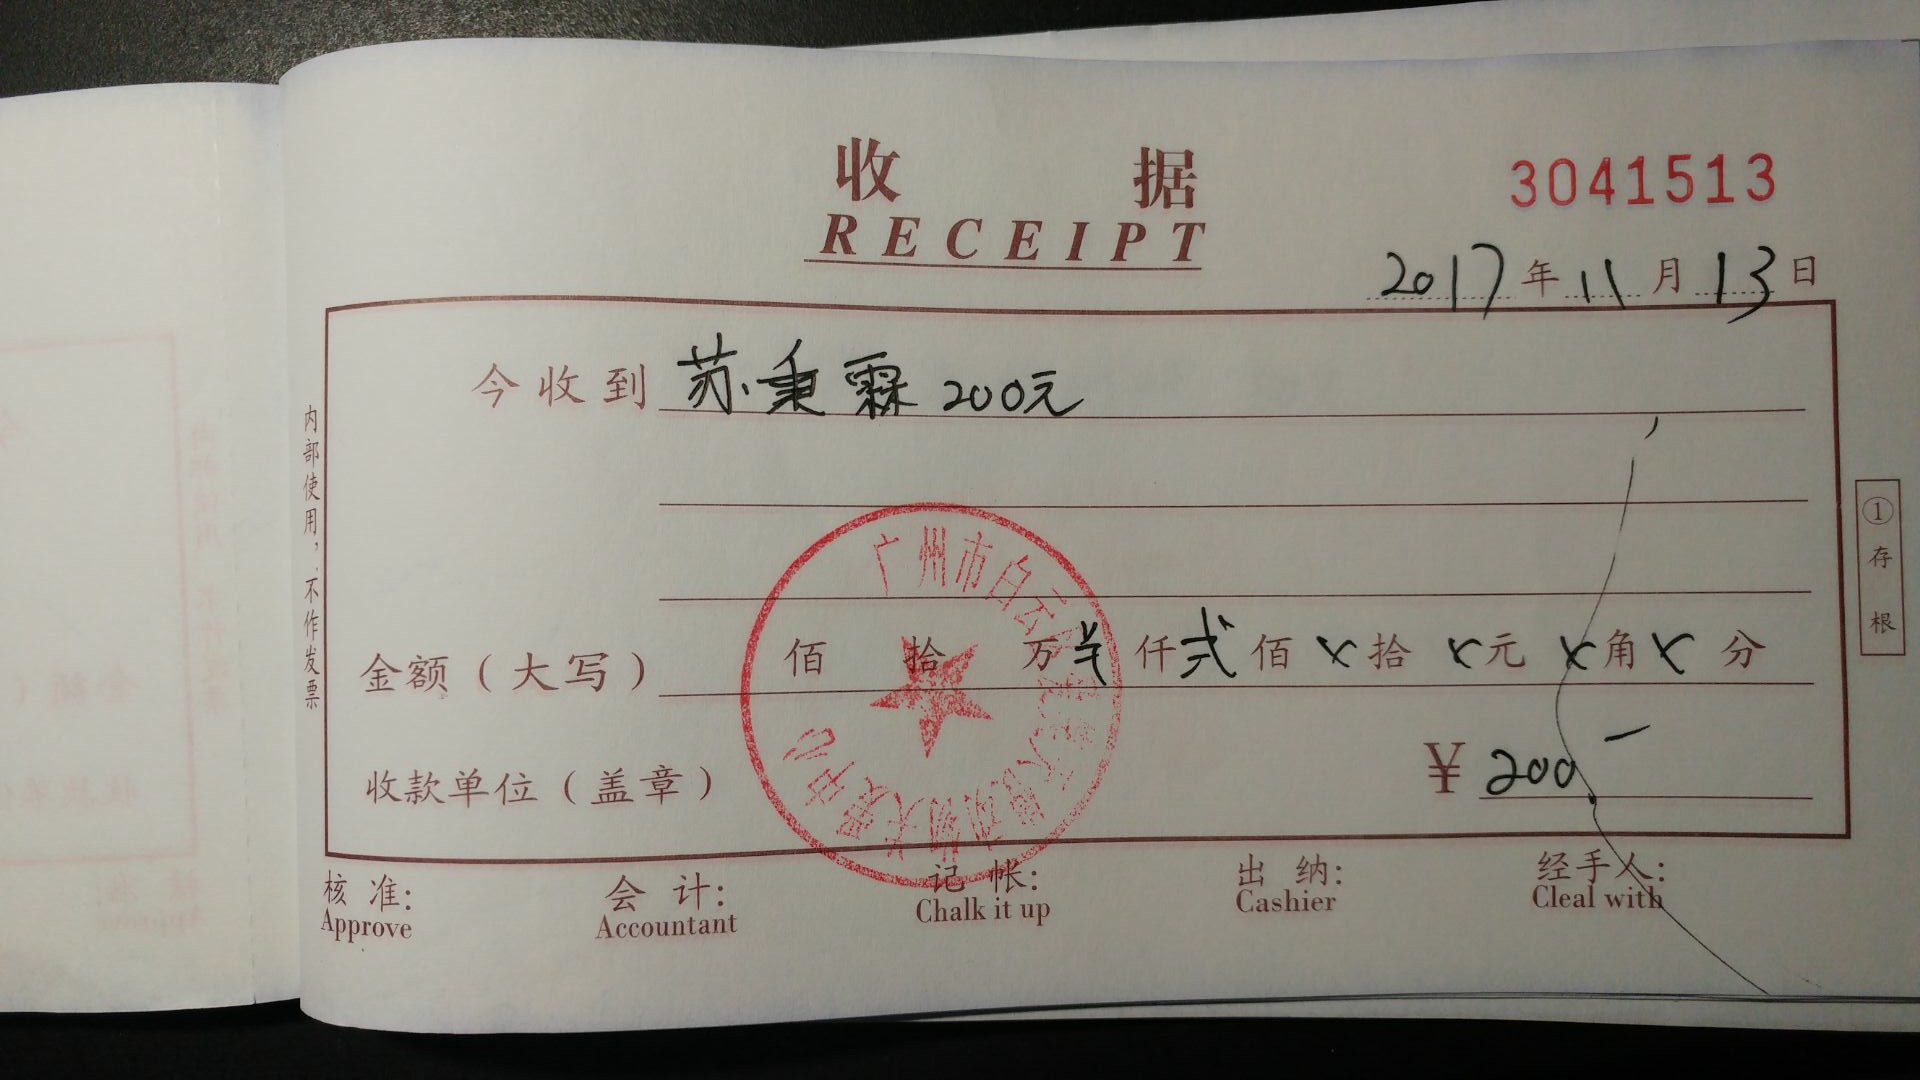 收 据
RECEIPT
3041513
2017年11月13日
今收到 苏秉霖 200元
内部使用，不作发票
①存根
广州市白云
中心
金额（大写） 佰 拾 万 ¥ 仟 弍 佰 x 拾 x 元 x 角 x 分
收款单位（盖章） ¥ 200 —
核 准: 会 计: 记 帐: 出 纳: 经手人:
Approve Accountant Chalk it up Cashier Cleal with